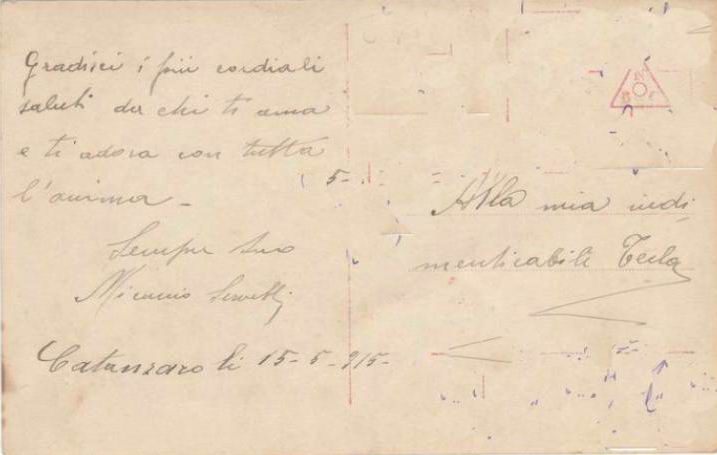 Gradisci i più cordiali
saluti da chi ti ama
e ti adora con tutta
l'anima -
Sempre tuo
Catanzaro li 15-5-915-
5-
Alla mia indi
menticabile Tecla